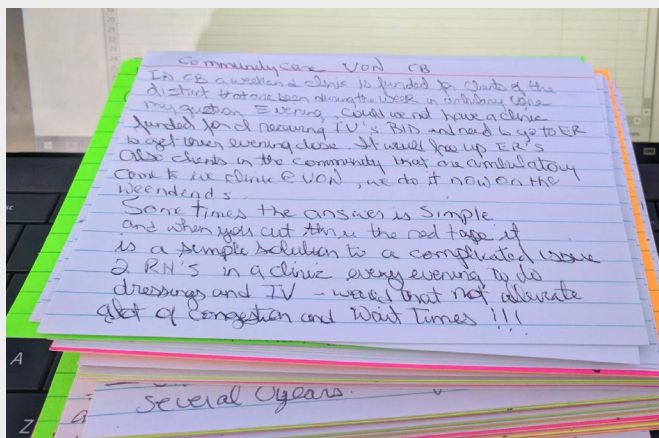 Community Care VON CB
In CB a weekend clinic is funded for clients of the
district that are seen during the week in ambulatory care
my question Evening, Could we not have a clinic
funded for cl receiving IV's BID and need to go to ER
to get their evening dose. It would free up ER's
Also clients in the community that are ambulatory
Come to the clinic @ VON, we do it now on the
Weendends.
Some times the answer is Simple
and when you cut thru the red tape it
is a simple solution to a complicated issue
2 RN's in a clinic every evening to do
dressings and IV - would that not alleviate
alot of Congestion and Wait Times !!!
several years.
A
Z